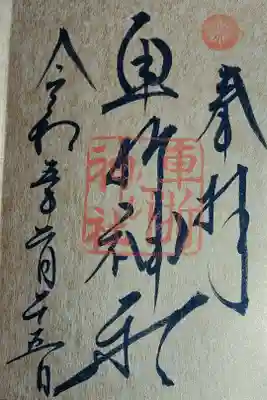 奉拝
車折神社
車折
神社
令和年六月十五日